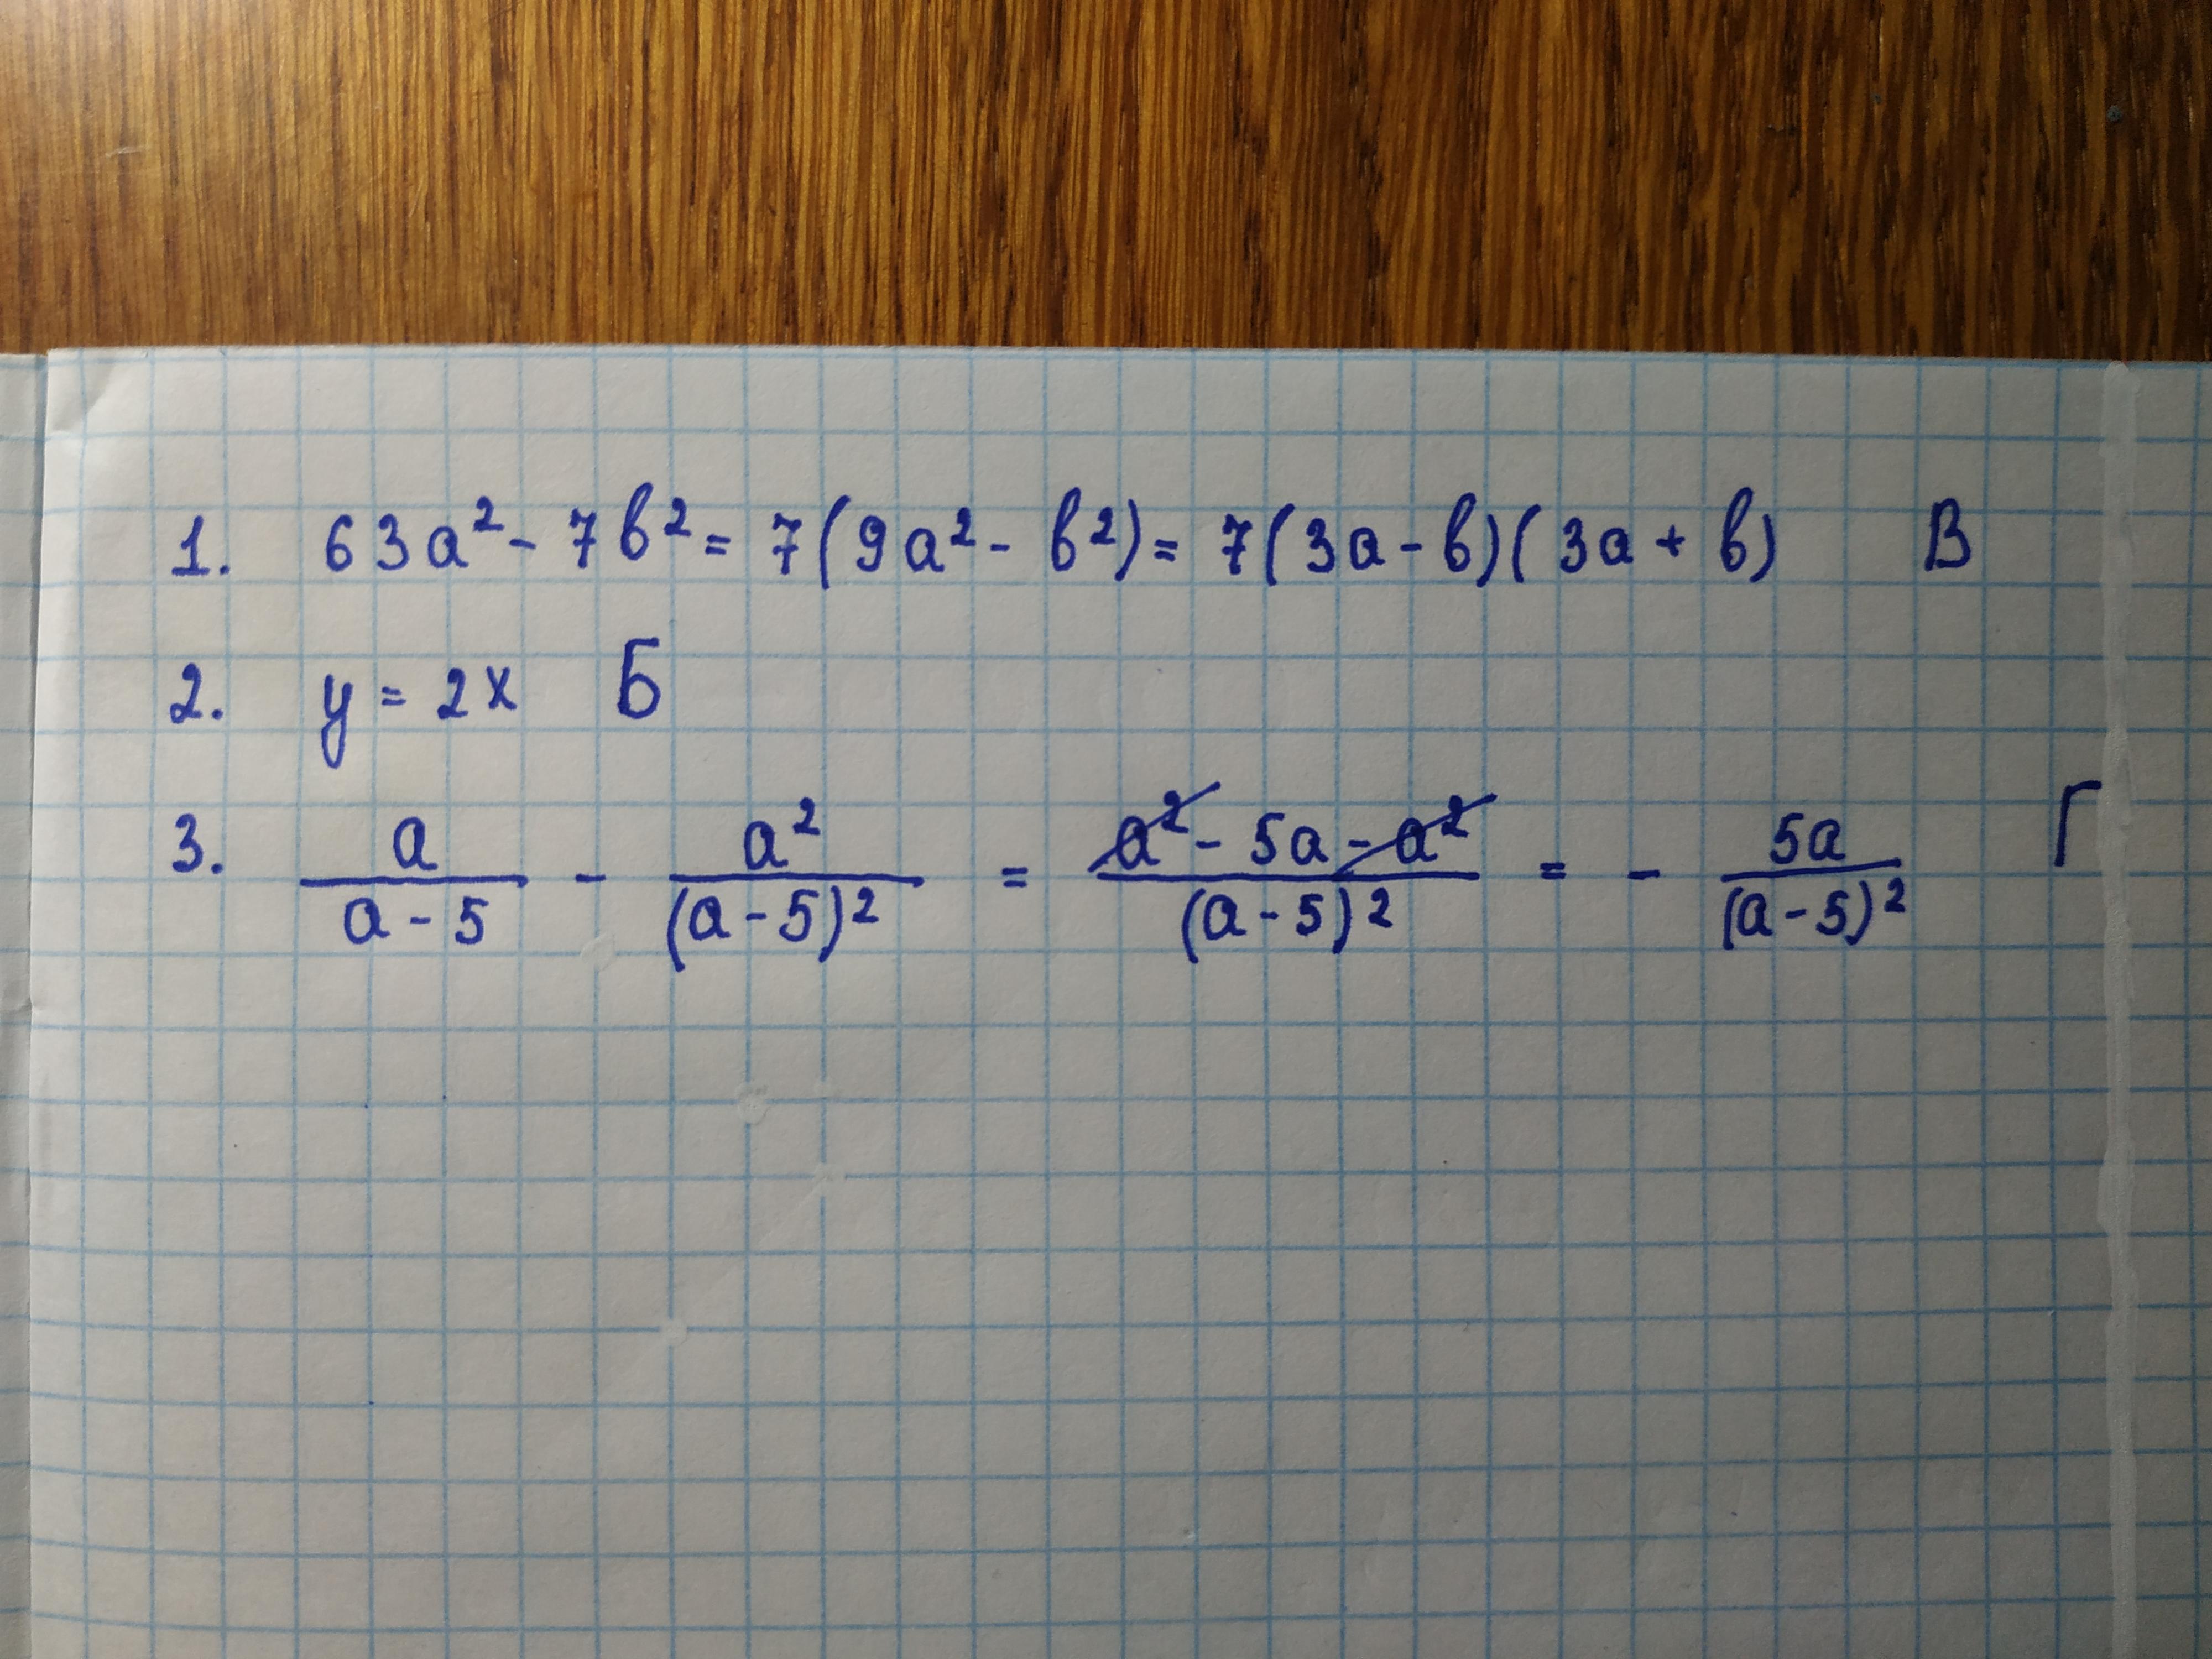 1. 63a² - 7b² = 7(9a² - b²) = 7(3a - b)(3a + b) В
2. y = 2x Б
3. a/(a - 5) - a²/(a - 5)² = (a² - 5a - a²)/(a - 5)² = - 5a/(a - 5)² Г